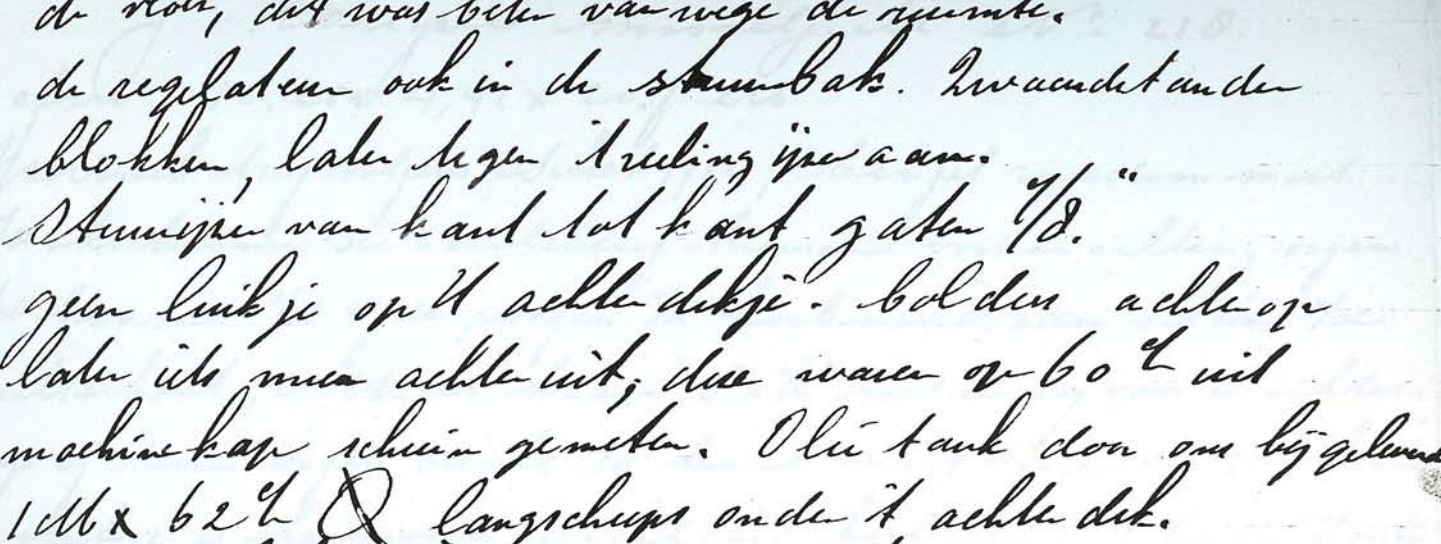 de vloer, dit was beter van wege de ruimte.
de regelateur ook in de stuurbak. Zwaardstanden
blokken, later tegen 't reeling ijzer aan.
Stuurijzer van kant tot kant gaten 7/8."
geen luikje op 't achterdekje. bolders achterop
later iets meer achteruit, deze waren op 60 cm uit
machinekap schuin gemeten. Olie tank door ons bijgeleverd
1 M x 62 cm langscheeps onder 't achterdek.